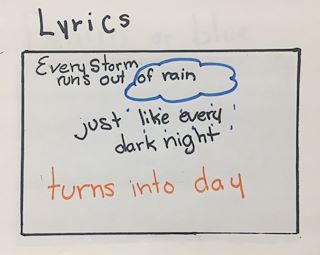 Lyrics
Every storm
runs out of rain
just like every
dark night
turns into day